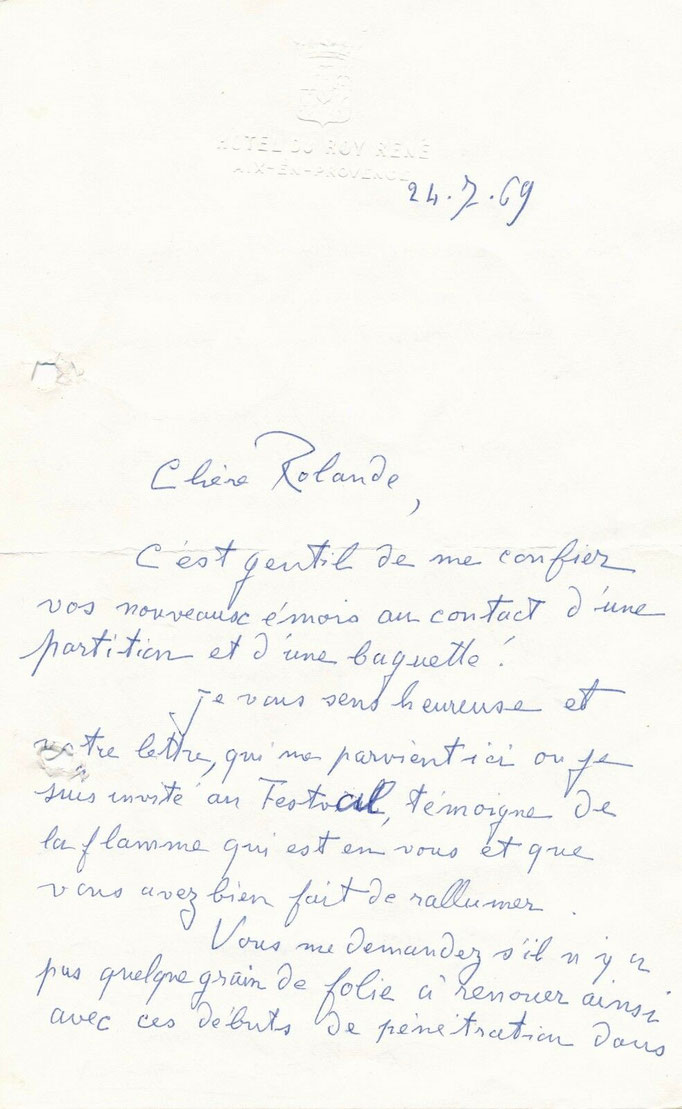 HÔTEL DU ROY RENÉ
AIX-EN-PROVENCE
24.7.69
Chère Rolande,
C'est gentil de me confier
vos nouveaux émois au contact d'une
partition et d'une baguette!
Je vous sens heureuse et
votre lettre, qui me parvient ici ou je
suis invité au Festival, témoigne de
la flamme qui est en vous et que
vous avez bien fait de rallumer.
Vous me demandez s'il n'y a
pas quelque grain de folie à renouer ainsi
avec ces débuts de pénétration dans